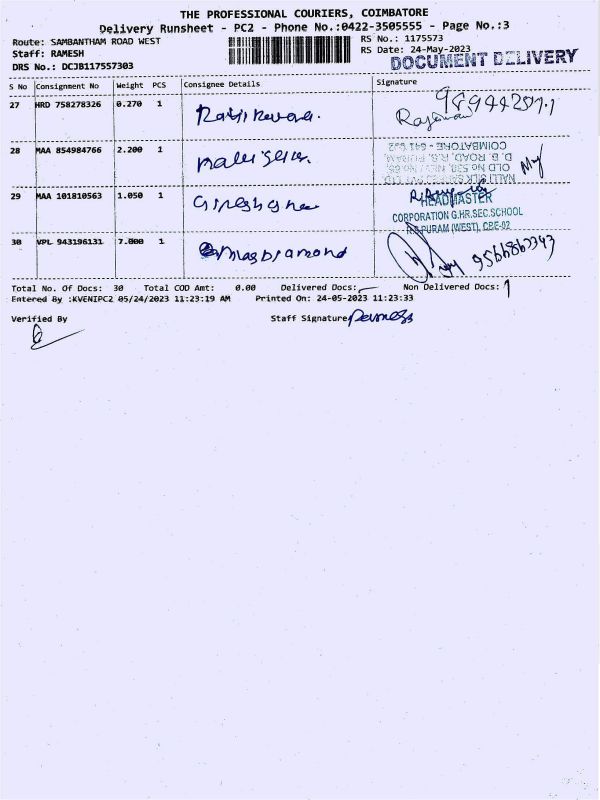 THE PROFESSIONAL COURIERS, COIMBATORE
Delivery Runsheet - PC2 - Phone No.:0422-3505555 - Page No.:3
Route: SAMBANTHAM ROAD WEST
RS No.: 1175573
Staff: RAMESH
RS Date: 24-May-2023
DRS No.: DCJB117557303
DOCUMENT DELIVERY
S No Consignment No Weight PCS Consignee Details Signature
27 HRD 758278326 0.270 1
28 MAA 854984766 2.200 1 nalli silk
COIMBATORE - 641 002
D. B. ROAD, R.S. PURAM
OLD No 538, NEW No.
NALLI SILK SAREES PVT LTD
29 MAA 101810563 1.050 1
HEADMASTER
CORPORATION G.HR.SEC.SCHOOL
R.S.PURAM (WEST), CBE-02
30 VPL 943196131 7.000 1 diamond
Total No. Of Docs: 30 Total COD Amt: 0.00 Delivered Docs: Non Delivered Docs: 1
Entered By :KVENIPC2 05/24/2023 11:23:19 AM Printed On: 24-05-2023 11:23:33
Verified By Staff Signature